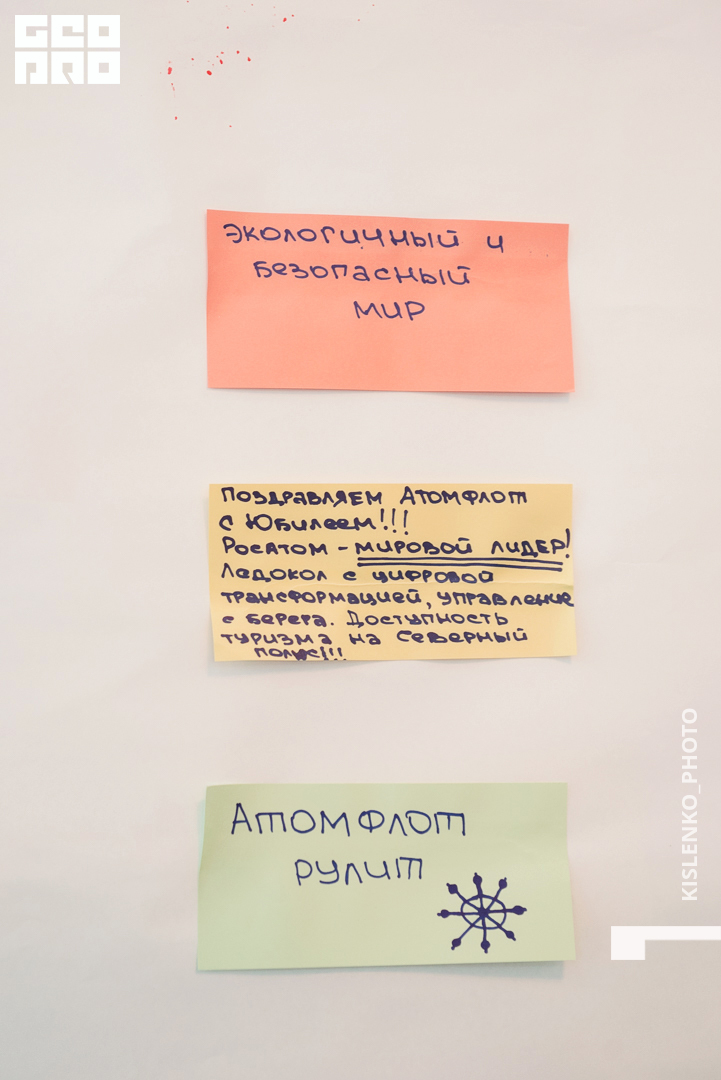 GEO
PRO
экологичный и
безопасный
мир
Поздравляем Атомфлот
с Юбилеем!!!
Росатом - мировой лидер!
Ледокол с цифровой
трансформацией, управление
с берега. Доступность
туризма на Северный
полюс!!!
Атомфлот
рулит
KISLENKO_PHOTO